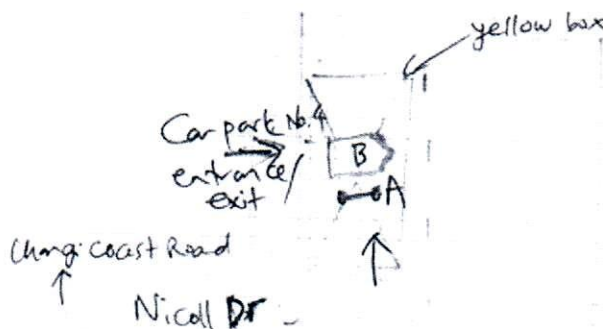 yellow box
Car park No. 4
B
entrance/
exit
A
Changi Coast Road
Nicoll Dr